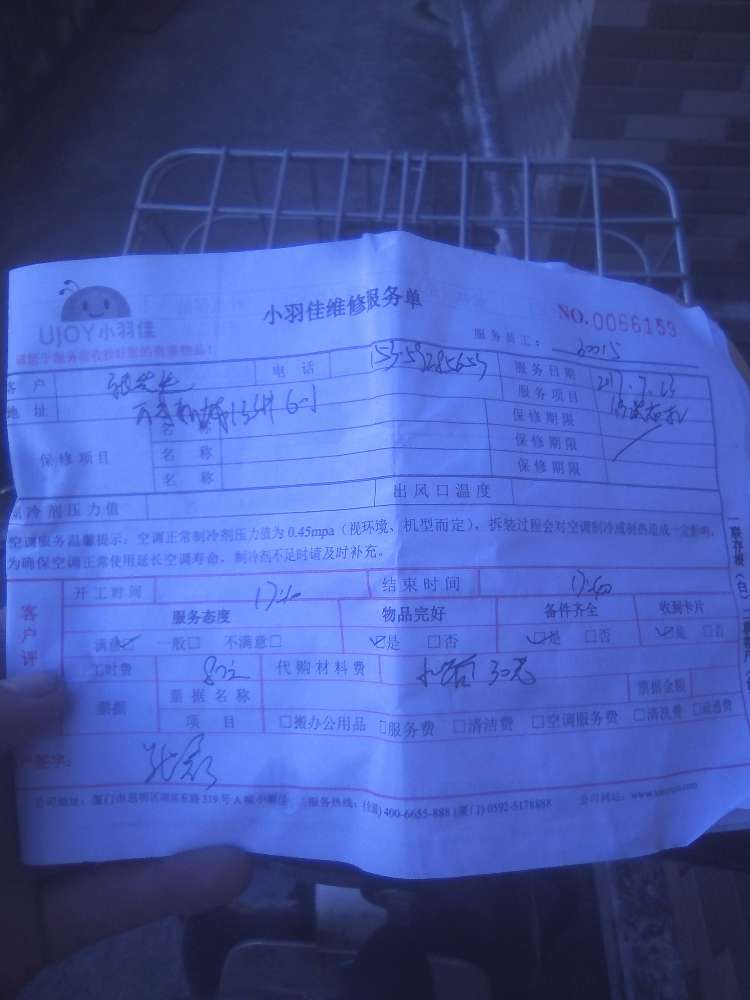 UJOY小羽佳
小羽佳维修服务单
NO.0066159
服务员工： 60015
客户 电话 服务日期 2017.7.23
地址 6-1 服务项目
保修项目 名称 保修期限
名称 保修期限
名称 保修期限
制冷剂压力值 出风口温度
空调服务温馨提示：空调正常制冷剂压力值为 0.45mpa（视环境、机型而定），拆装过程会对空调制冷或制热造成一定影响，
为确保空调正常使用延长空调寿命，制冷剂不足时请及时补充。
客户评
开工时间 结束时间 17:40
服务态度 物品完好 备件齐全 收到卡片
满意□ 一般□ 不满意□ □是 □否 □是 □否 □是 □否
工时费 80元 代购材料费 30元
票据 票据名称 票据金额
项目 □搬办公用品 □服务费 □清洁费 □空调服务费 □清洗费 □疏通费
签字：
公司地址：厦门市思明区湖滨东路 319 号 A 幢小羽佳 服务热线：(全国) 400-6655-888 (厦门) 0592-5178888 公司网址：